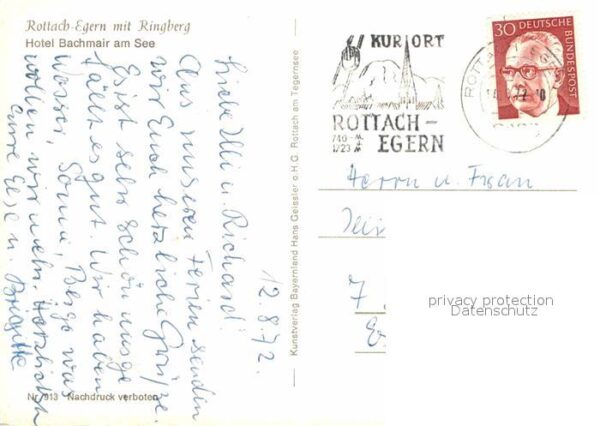 Rottach-Egern mit Ringberg
Hotel Bachmair am See
12.8.72.
Liebe Ulli u. Richard!
Aus unseren Ferien senden
wir Euch herzliche Grüße.
Es ist sehr schön, uns
fällt es gut. Wir haben
Wasser, Sonne, Berge was
wollen wir mehr. Herzlichst
Eure Else u. Brigitte
Nr. 913 Nachdruck verboten
Kunstverlag Bayernland Hans Geissler o.H.G. Rottach am Tegernsee
KURORT
ROTTACH-
EGERN
740-
1723
30 DEUTSCHE
BUNDESPOST
Herrn u. Frau
7
privacy protection
Datenschutz